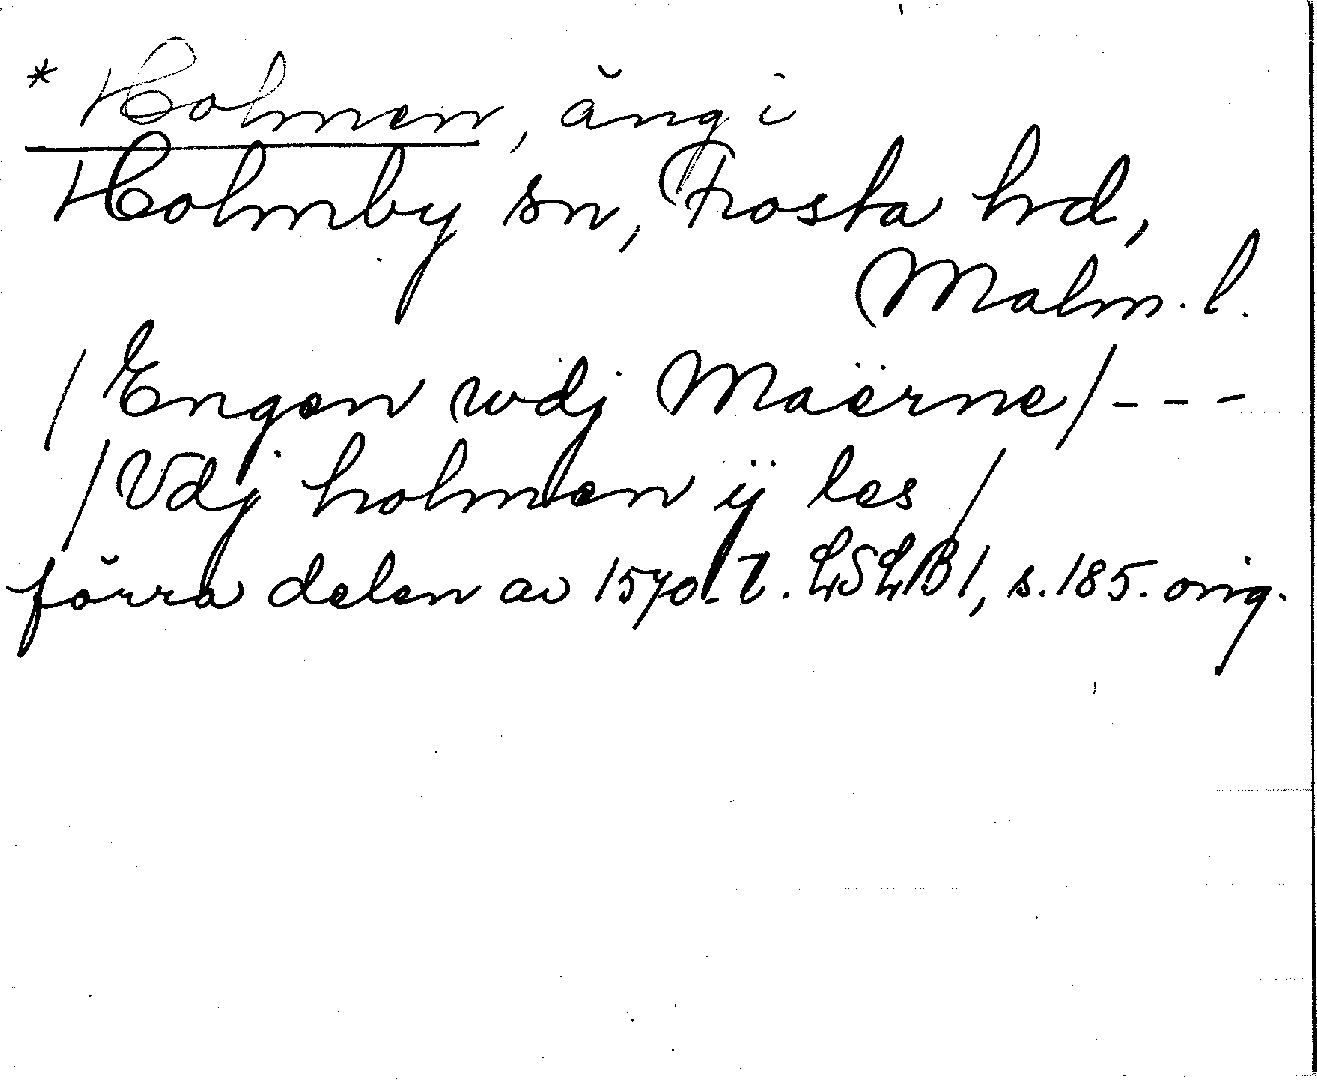 * Holmen, äng i
Holmby sn, Frosta hd,
Malm. l.
/Engen wdj Maërne/ - - -
/Vdj holmen ÿ les/
förra delen av 1570-t. LSLB1, s. 185. orig.